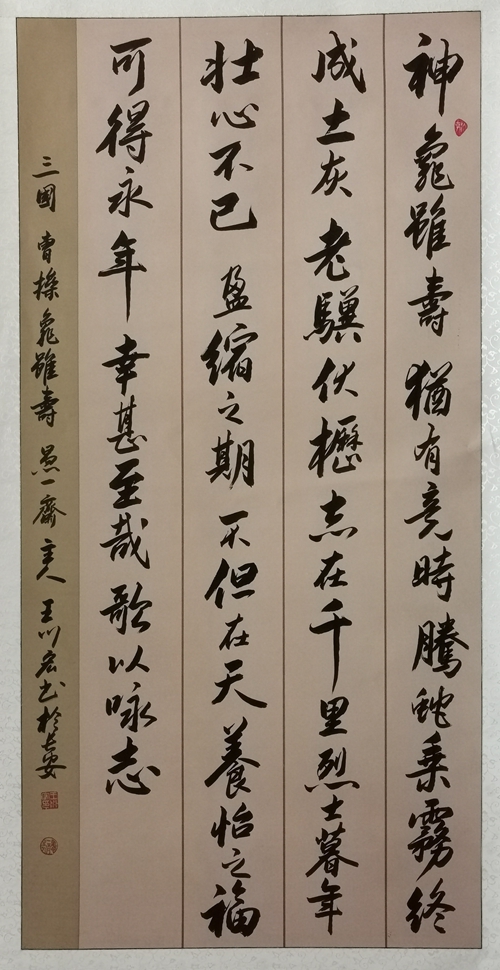 神龜雖壽猶有竟時騰蛇乗霧終
成土灰老驥伏櫪志在千里烈士暮年
壯心不已盈縮之期不但在天養怡之福
可得永年幸甚至哉歌以咏志
三國曹操龜雖壽愚一齋主人王川宏书於长安